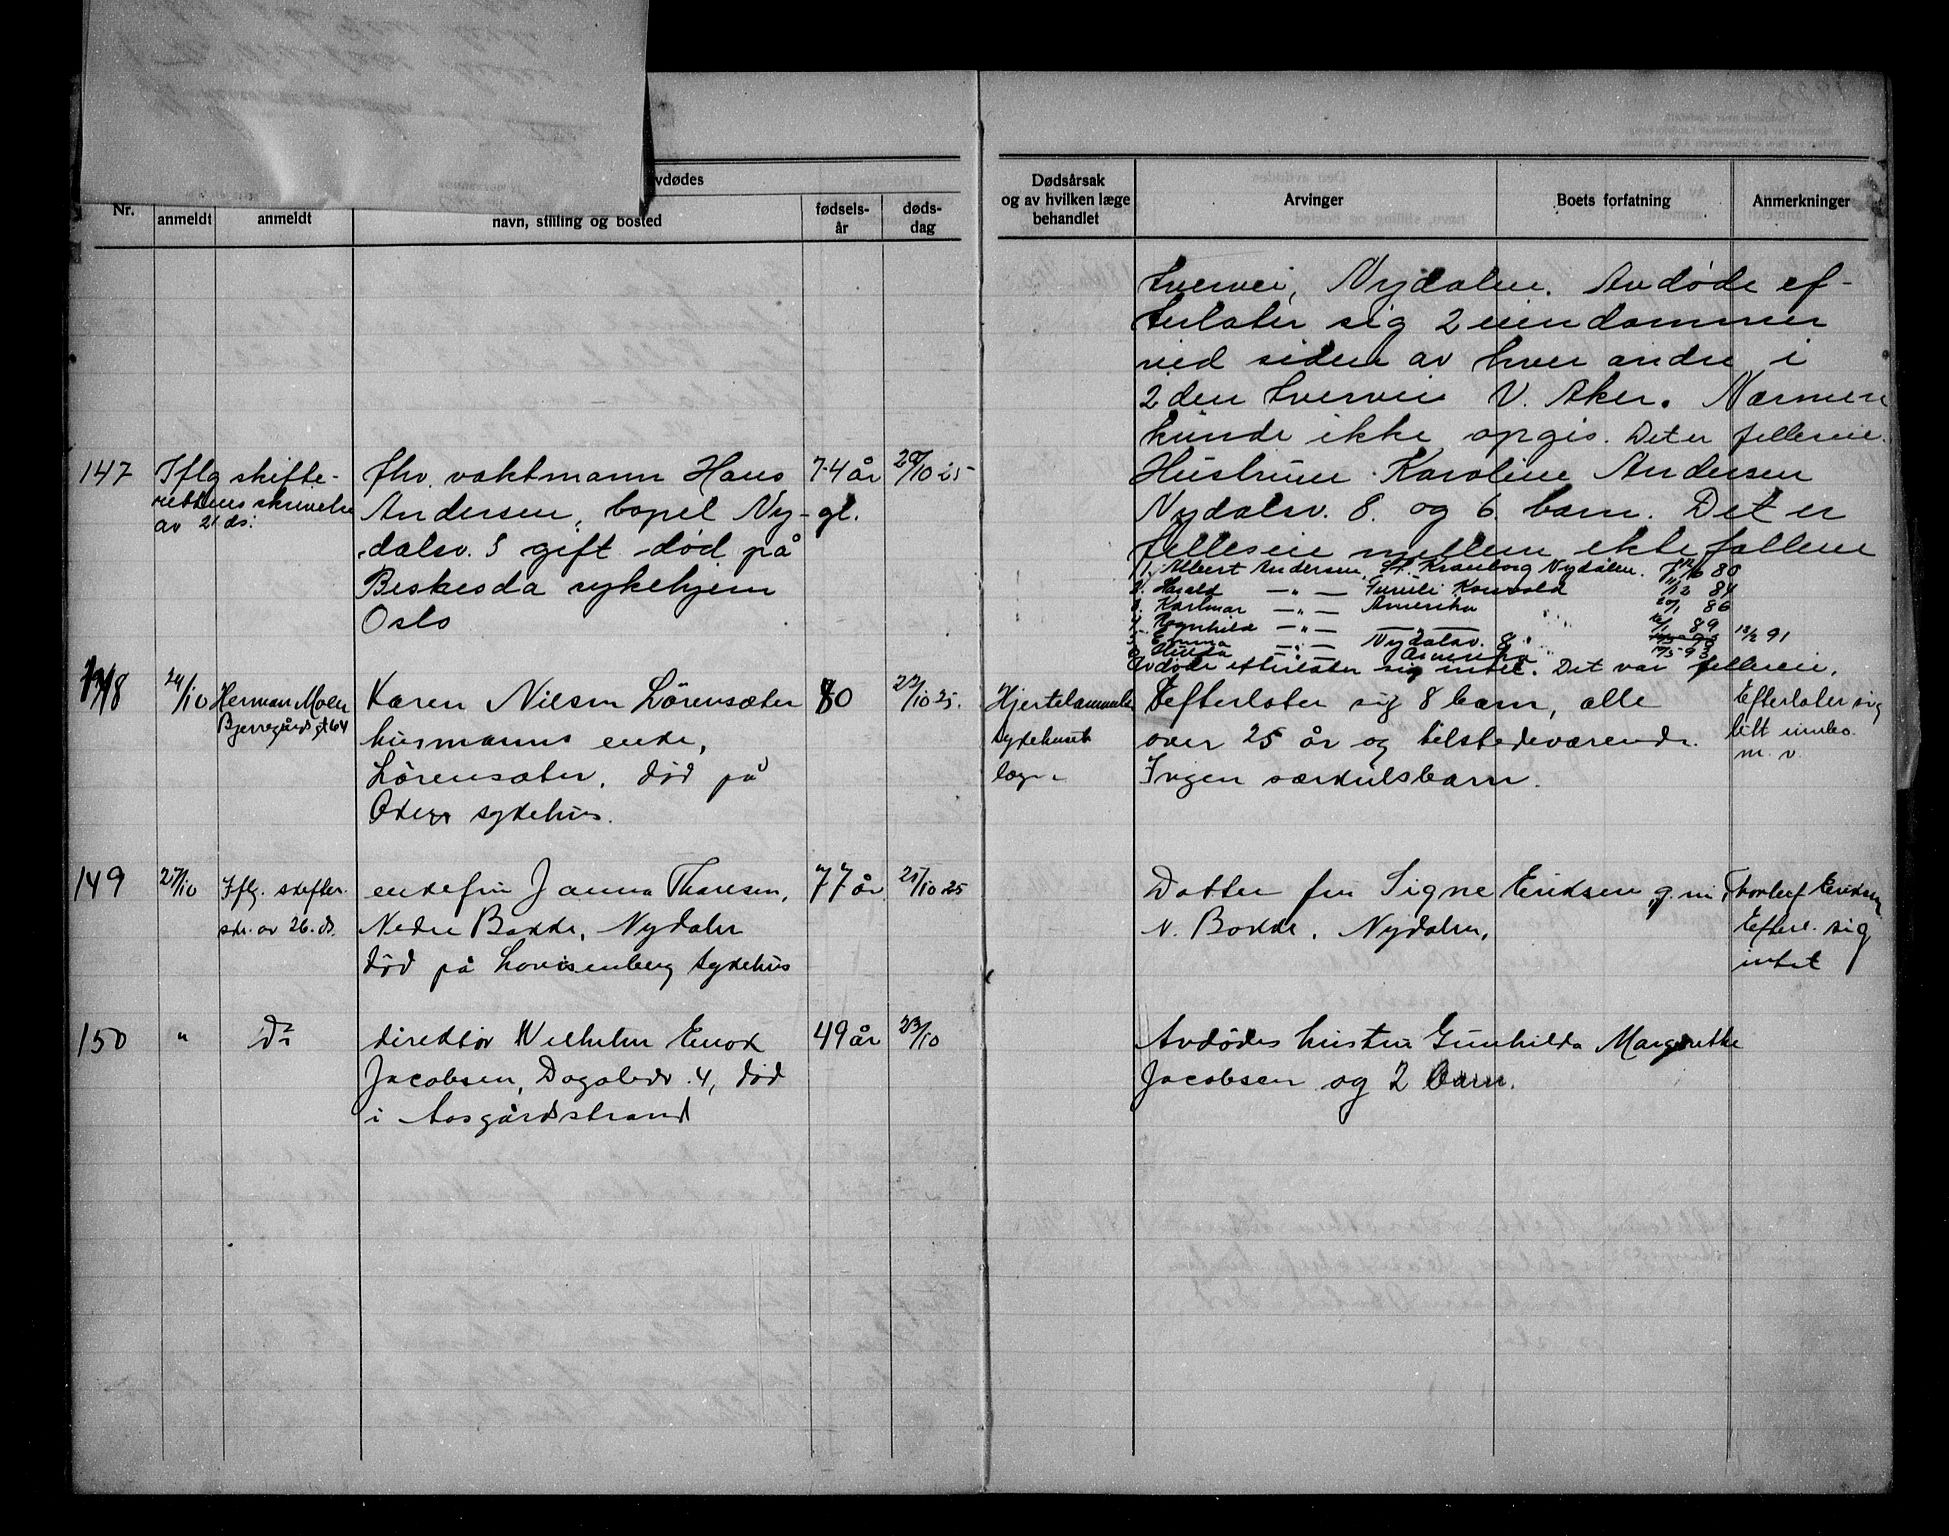 vdødes
Nr.
anmeldt
anmeldt
navn, stilling og bosted
fødsels-
år
døds-
dag
Dødsårsak
og av hvilken læge
behandlet
Arvinger
Boets forfatning
Anmerkninger
tvervei, Nydalen. Avdøde ef-
terlater sig 2 eiendommer
ved siden av hver andre i
2den tvervei V. Aker. Nærmere
kunde ikke opgis. Det er felleseie.
147
Iflg skifte-
rettens skrivelse
av 21 ds.
fhv. vaktmann Hans
Andersen, bopel Ny-
dalsv. 8 gift død på
Beskesda sykehjem
Oslo
74 år
gl.
20/10 25
Hustruen Karoline Andersen
Nydalsv. 8. og 6 barn. Det er
felleseie mellem ektefallene
1. Albert Andersen, St. Kranborg Nydalen. 80
2. Harald —"— 84
3. Karlmar —"— Amerika 20/1 86
4. Ragnhild —"— 89
5. Emma —"— Nydalsv. 8 12/2 91
6. Hilda —"— Amerika 10/5 93
Avdøde efterlater sig intet. Det var felleseie.
148
24/10
Herman Moen
Bjerregårds gt 64
Karen Nilsen Lörensæter
husmanns enke,
Lörensæter, død på
Akers sykehus.
80
23/10 25.
Hjertelammelse
sykehusets
læge
Efterlater sig 8 barn, alle
over 25 år og tilstedeværende.
Ingen særkulsbarn.
Efterlater sig
litt innbo
m. v.
149
27/10
Iflg. skifter.
skr. av 26. ds.
enkefru Janna Thoresen,
Nedre Bakke, Nydalen
død på Lovisenberg sykehus
77 år
21/10 25
Datter fru Signe Eriksen, g. m. Thorleif Eriksen
N. Bakke, Nydalen,
Efterl. sig
intet
150
"
do
direktør Wilhelm Enok
Jacobsen, Dagaliv. 4, død
i Aasgårdstrand
49 år
23/10
Avdødes hustru Gunhilda Margrethe
Jacobsen og 2 barn.